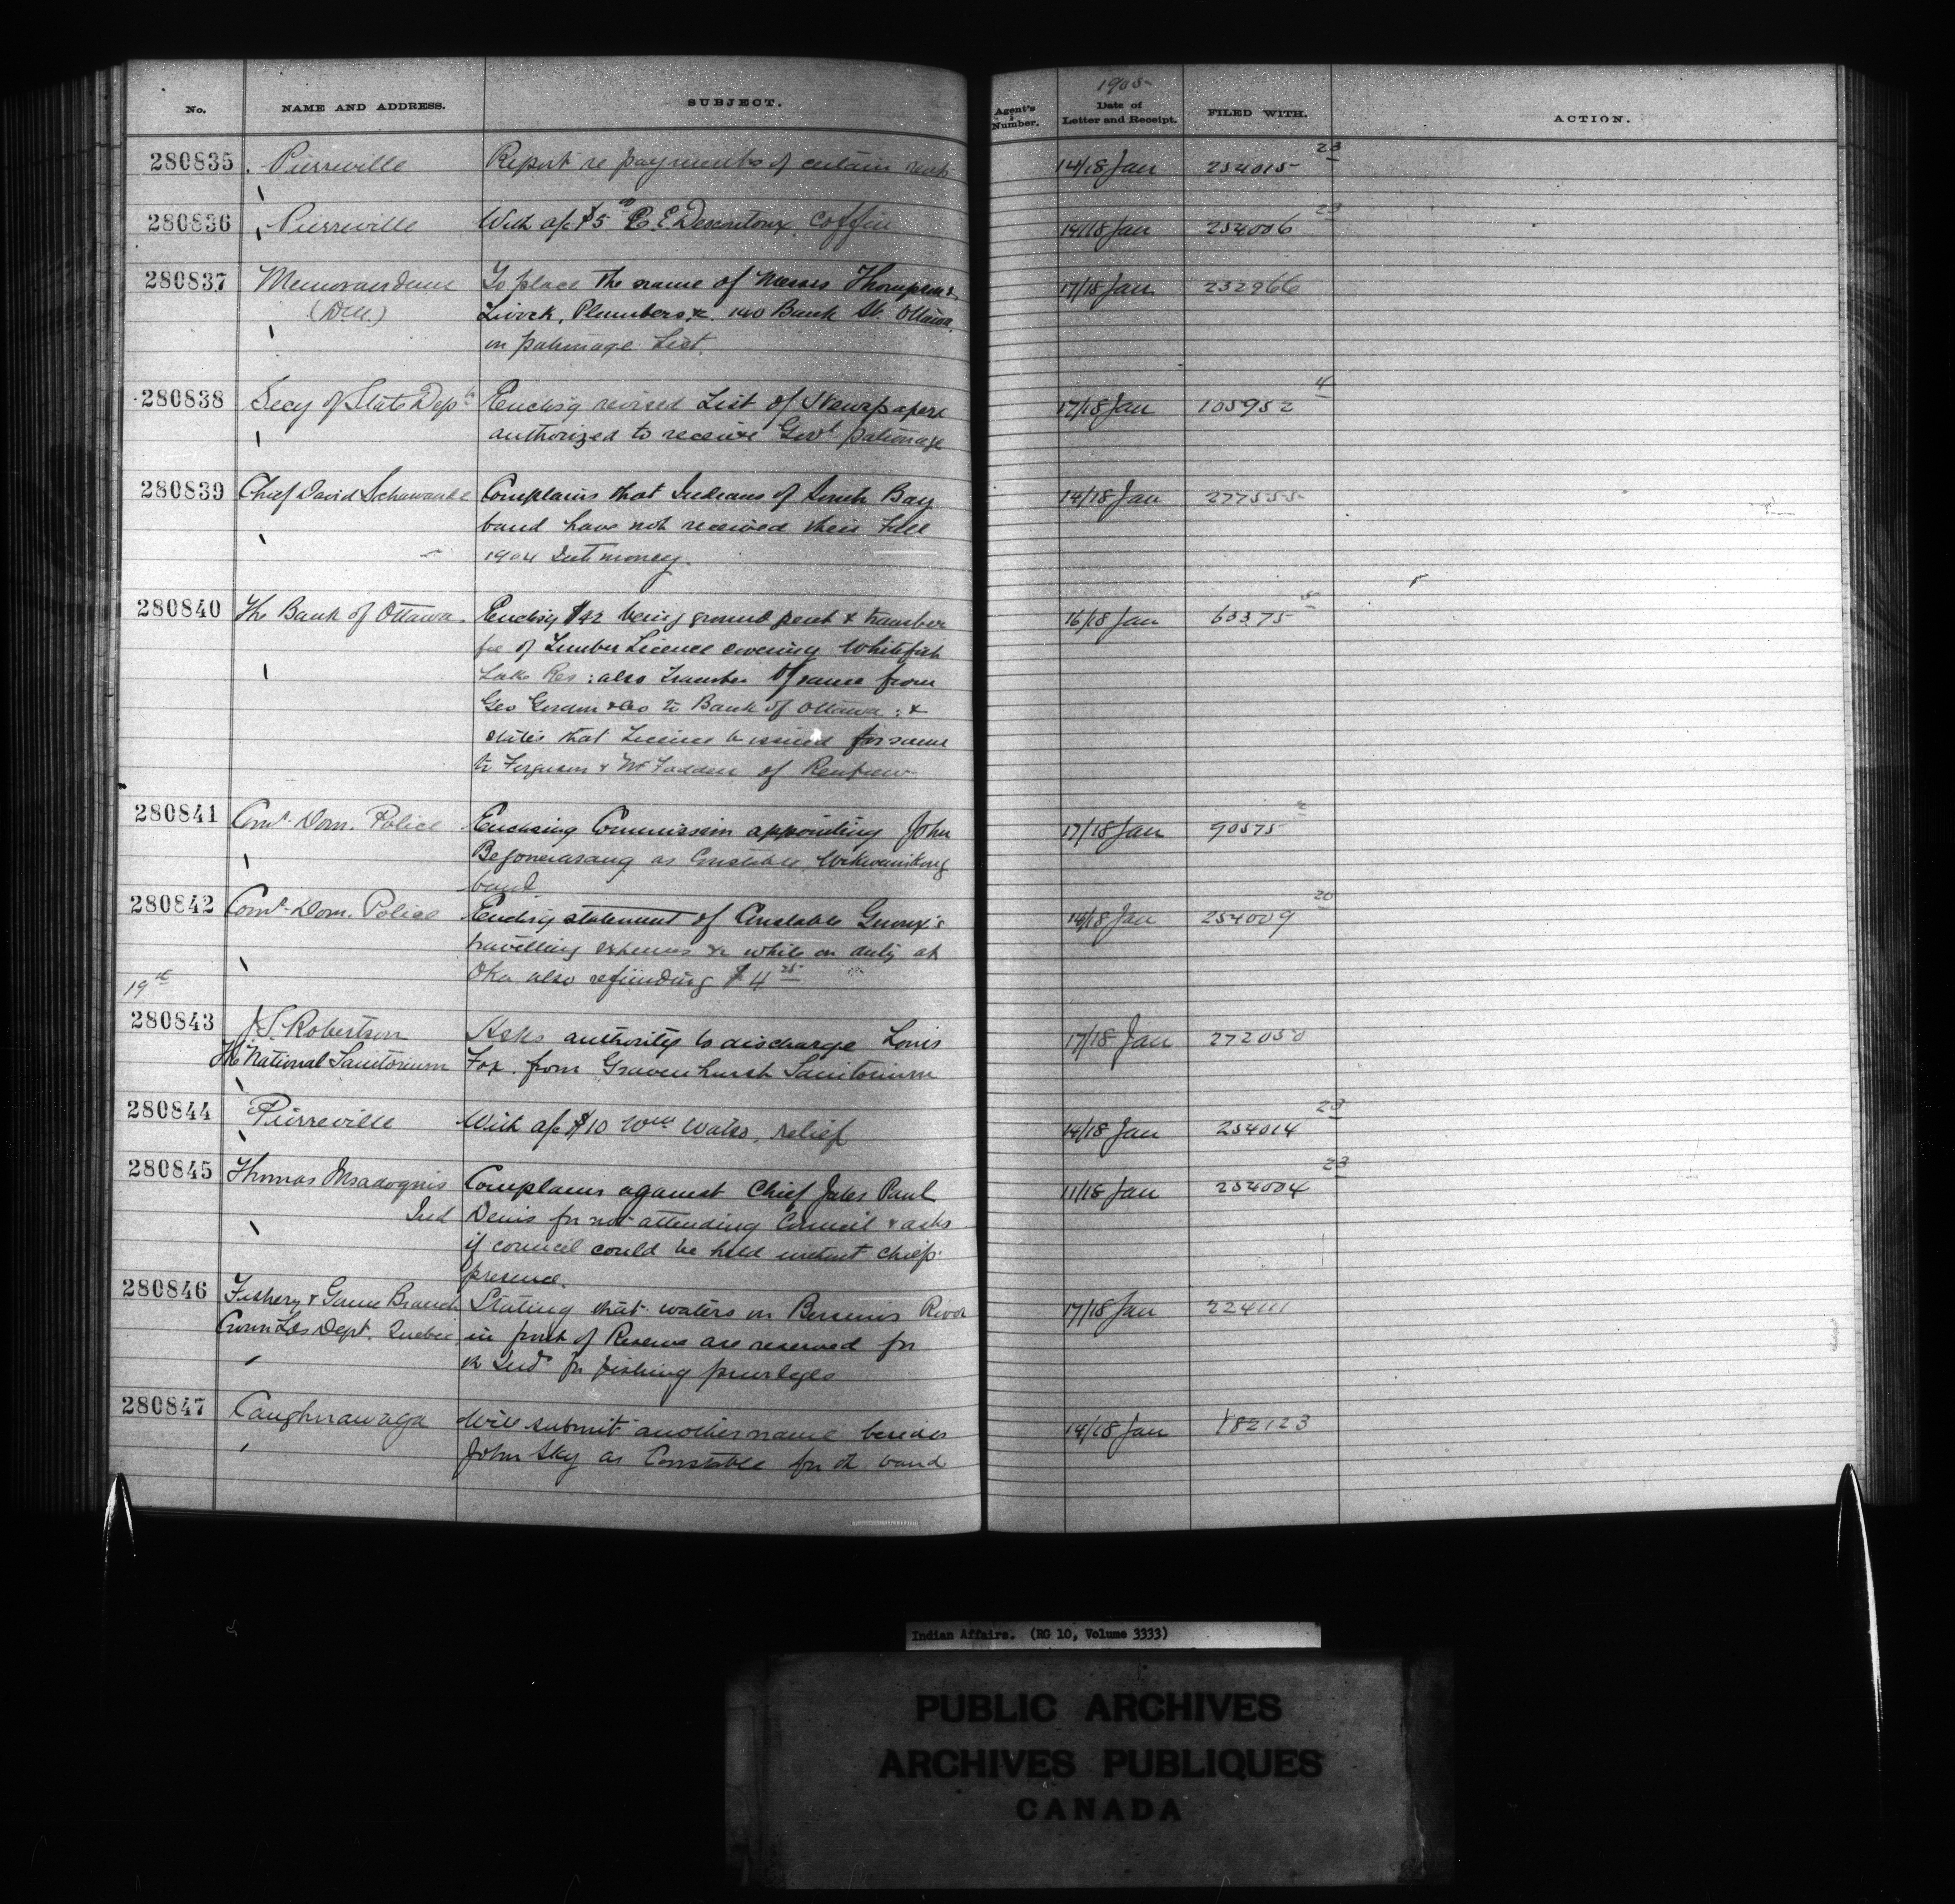 No. NAME AND ADDRESS. SUBJECT. Agent's Number. 1905 Date of Letter and Receipt. FILED WITH. ACTION.
280835 Pierreville Report re payments of certain rents 14/18 Jan 254015 23
280836 Pierreville With a/c $5 00 E. Descontoux Coffin 14/18 Jan 254006 23
280837 Memorandum To place the name of Messrs Thompson & 17/18 Jan 232966
Livock, Plumbers &c. 140 Bank St. Ottawa
on patronage List.
280838 Secy of State Dept Enclos'g revised List of Newspapers 17/18 Jan 105952 4
authorized to receive Govt patronage
280839 Chief David Complains that Indians of South Bay 14/18 Jan 277555
band have not received their Fall
1904 Int money.
280840 The Bank of Ottawa Enclos'g $42 being ground rent & transfer 16/18 Jan 63375
fee of Timber Licence covering Whitefish
Lake Res: also transfer of same from
Geo Gordon & Co to Bank of Ottawa: &
states that Licence be issued for same
to Ferguson & McFadden of Renfrew
280841 Comr. Dom. Police Enclosing Commission appointing John 17/18 Jan 90575
as Constable, Wikwemikong
band
280842 Comr. Dom. Police Enclos'g statement of Constable 14/18 Jan 254009 20
travelling expenses &c while on duty at
Oka also refunding $4 25
19th
280843 J.S. Robertson Asks authority to discharge Louis 17/18 Jan 272050
The National Sanitorium Fox from Gravenhurst Sanitorium
280844 Pierreville With a/c $10 Wm Watso, relief 14/18 Jan 254014 23
280845 Thomas Msadoquis Complains against Chief Jules Paul 11/18 Jan 254004 23
Ind Denis for not attending Council & asks
if council could be held without chiefs
presence.
280846 Fishery & Game Branch Stating that waters on Bersimis River 17/18 Jan 224111
Crown Lds Dept. Quebec in front of Reserve are reserved for
th Inds for fishing privileges
280847 Caughnawaga Will submit another name besides 14/18 Jan 182123
John Sky as Constable for th band
Indian Affairs. (RG 10, Volume 3333)
PUBLIC ARCHIVES
ARCHIVES PUBLIQUES
CANADA